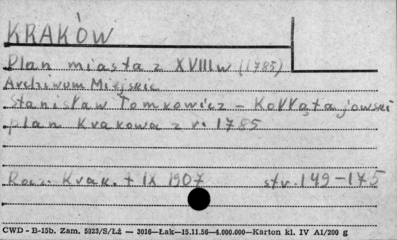 KRAKÓW
Plan miasta z XVIII w (1785)
Archiwum Miejskie
Stanisław Tomkowicz - Kołłątajowski
plan Krakowa z r. 1785
Rocz. Krak. t IX 1907 str. 149-175
CWD - B-15b. Zam. 5323/S/Łź — 3016—Łak—15.11.56—4.000.000—Karton kl. IV A1/200 g